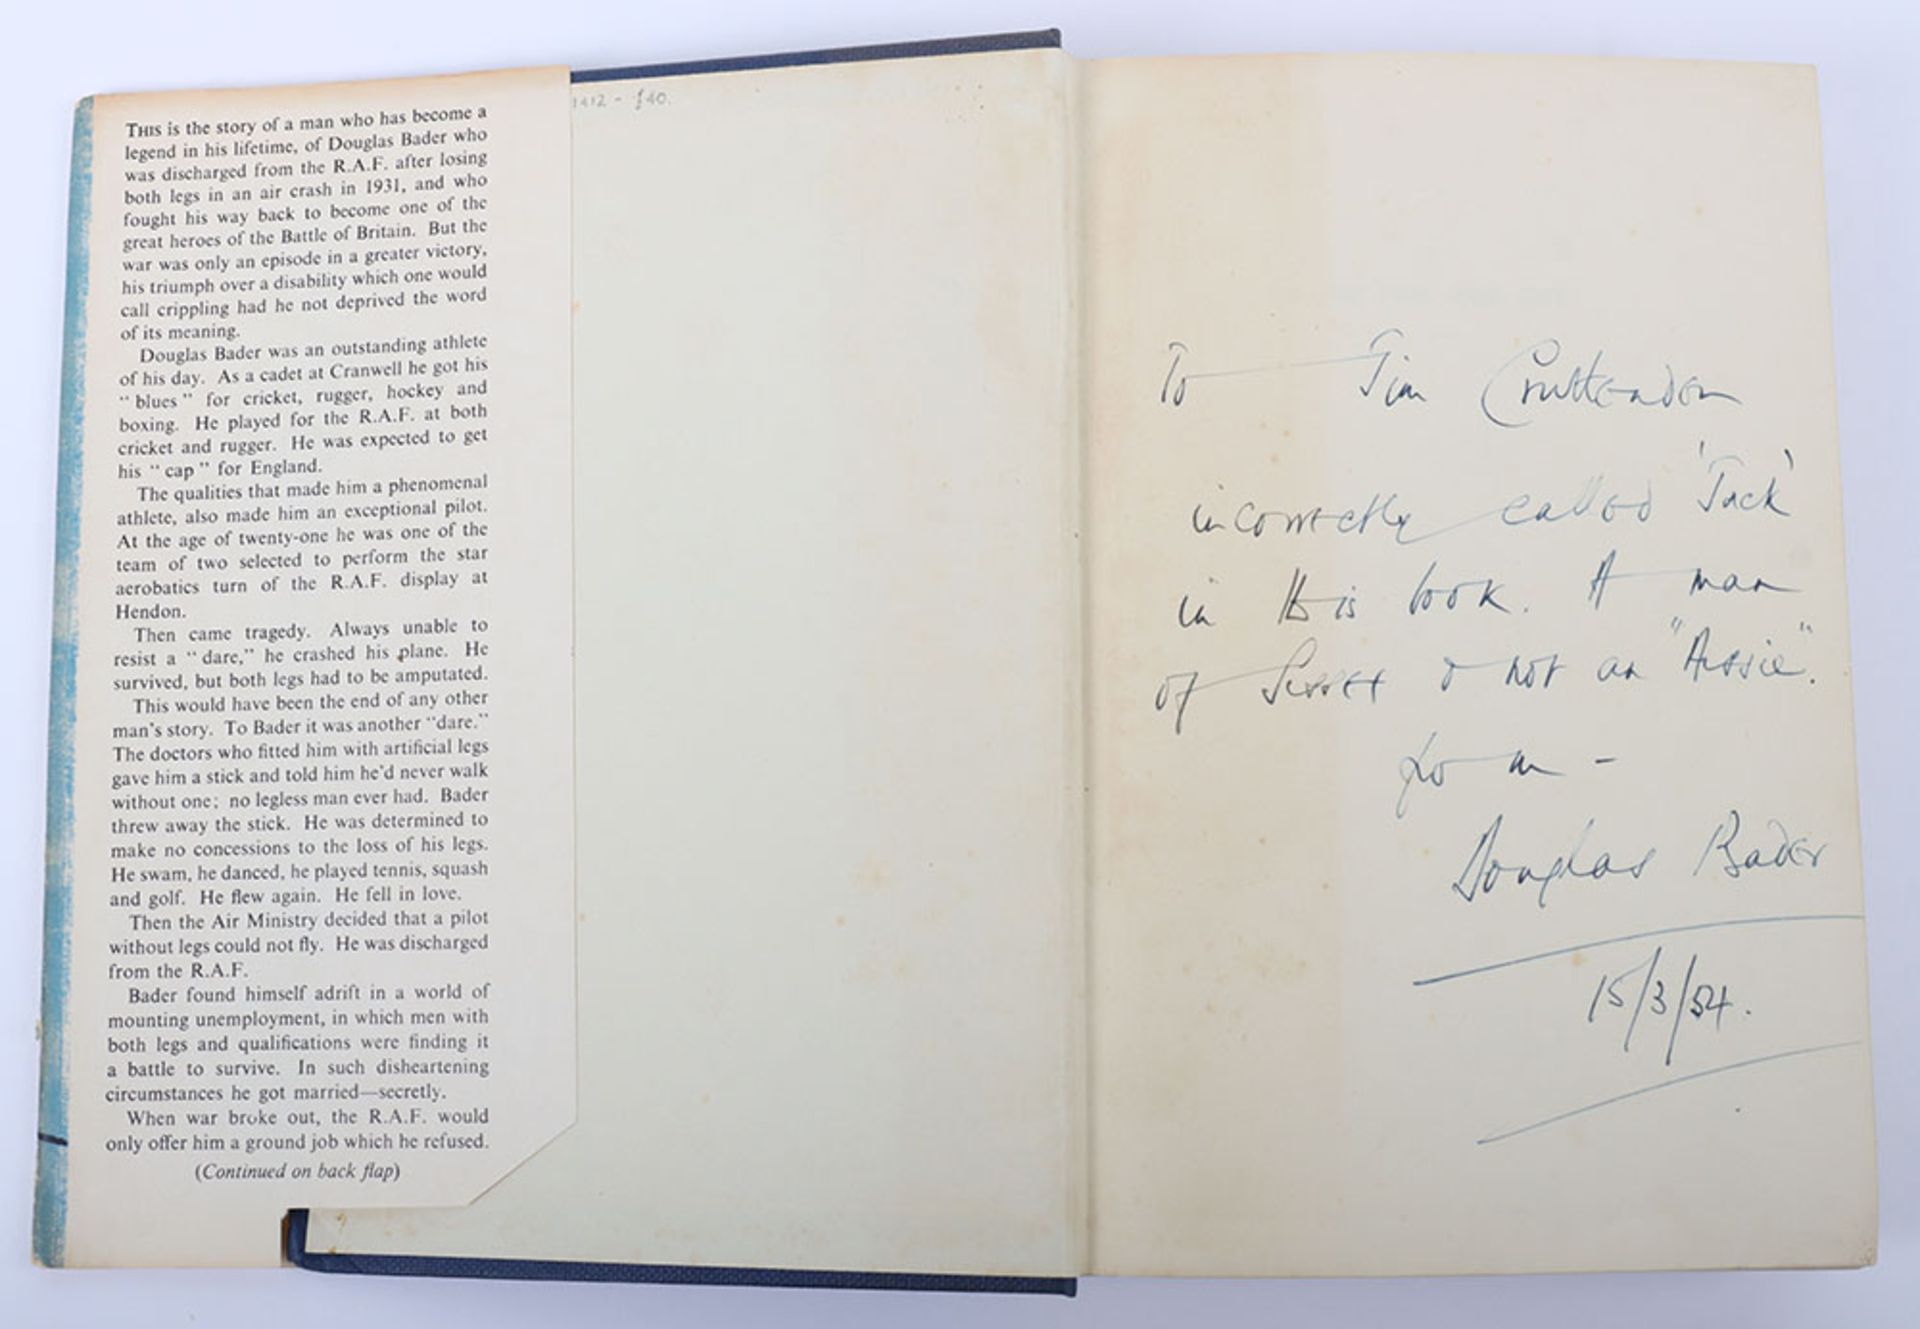 THIS is the story of a man who has become a
legend in his lifetime, of Douglas Bader who
was discharged from the R.A.F. after losing
both legs in an air crash in 1931, and who
fought his way back to become one of the
great heroes of the Battle of Britain. But the
war was only an episode in a greater victory,
his triumph over a disability which one would
call crippling had he not deprived the word
of its meaning.
Douglas Bader was an outstanding athlete
of his day. As a cadet at Cranwell he got his
“blues” for cricket, rugger, hockey and
boxing. He played for the R.A.F. at both
cricket and rugger. He was expected to get
his “cap” for England.
The qualities that made him a phenomenal
athlete, also made him an exceptional pilot.
At the age of twenty-one he was one of the
team of two selected to perform the star
aerobatics turn of the R.A.F. display at
Hendon.
Then came tragedy. Always unable to
resist a “dare,” he crashed his plane. He
survived, but both legs had to be amputated.
This would have been the end of any other
man's story. To Bader it was another “dare.”
The doctors who fitted him with artificial legs
gave him a stick and told him he'd never walk
without one; no legless man ever had. Bader
threw away the stick. He was determined to
make no concessions to the loss of his legs.
He swam, he danced, he played tennis, squash
and golf. He flew again. He fell in love.
Then the Air Ministry decided that a pilot
without legs could not fly. He was discharged
from the R.A.F.
Bader found himself adrift in a world of
mounting unemployment, in which men with
both legs and qualifications were finding it
a battle to survive. In such disheartening
circumstances he got married—secretly.
When war broke out, the R.A.F. would
only offer him a ground job which he refused.
(Continued on back flap)
£40.
To Tim Cruttenden
incorrectly called 'Jack'
in this book. A man
of Sussex & not an "Aussie".
from -
Douglas Bader
15/3/54.